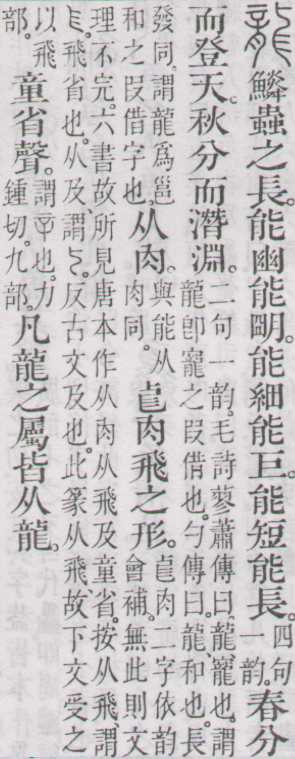 龍 鱗蟲之長。能幽能朙。能細能巨。能短能長。四句一韵。春分
而登天。秋分而潛淵。二句一韵。毛詩蓼蕭傳曰。龍、寵也。謂
龍卽寵之叚借也。勺傳曰。龍、和也。長
發同。謂龍爲邕
和之叚借字也。从肉。與能从肉同。肉飛之形。肉二字依韵
會補。無此則文
理不完。六書故所見唐本作从肉从飛及童省。按从飛、謂
飛省也。从及、謂反古文及也。此篆从飛、故下文受之
以飛
部。童省聲。謂䇂也。力鍾切。九部。凡龍之屬皆从龍。